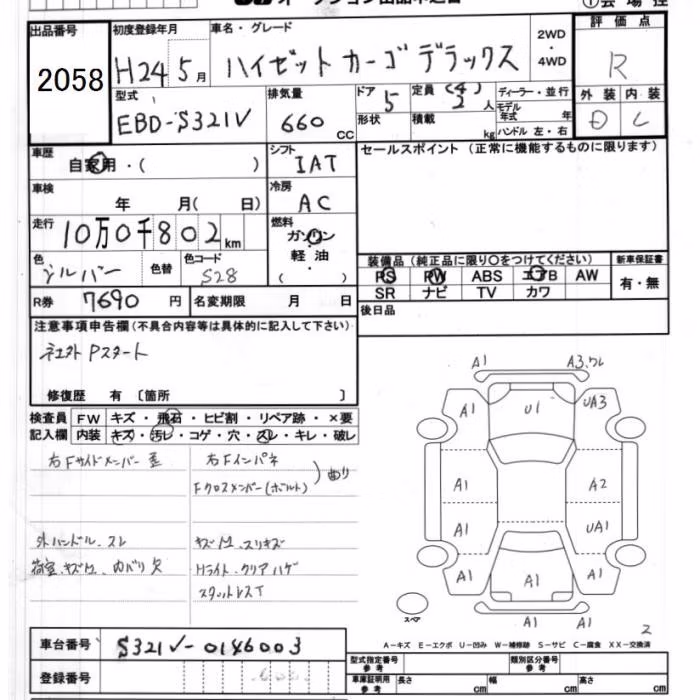 出品番号
2058
初度登録年月
H24 5月
車名・グレード
ハイゼット カーゴ デラックス
2WD
・
4WD
評価点
R
型式
EBD-S321V
排気量
660 CC
ドア
5
形状
定員 (4)
2 人
積載 kg
ディーラー・並行
モデル年式 年
ハンドル 左・右
外装 内装
D C
車歴
自家用・( )
シフト
IAT
車検
年 月( 日)
冷房
AC
セールスポイント(正常に機能するものに限ります)
走行
10万0千802 km
燃料
ガソリン
軽油
・
( )
色
シルバー
色替
色コード
S28
装備品(純正品に限り○をつけてください)
新車保証書
PS PW ABS エアB AW
SR ナビ TV カワ
有・無
R券 7690 円
名変期限 月 日
後日品
注意事項申告欄(不具合内容等は具体的に記入して下さい)
修復歴 有 〔箇所 〕
検査員記入欄
FW キズ・飛石・ヒビ割・リペア跡・×要
内装 キズ・汚レ・コゲ・穴・スレ・キレ・破レ
右Fサイドメンバー 歪
右Fインパネ
Fクロスメンバー(ボルト) )曲り
外ハンドル、スレ
キズ凹、スリキズ
荷室、キズ凹、内バリ欠
Hライト、クリアハゲ
スタットレスT
A1 A3,ワレ
A1 U1 UA3
A1 A2
A1 UA1
A1 A1 A1
A1 A1
スペア
2
A-キズ E-エクボ U-凹み W-補修跡 S-サビ C-腐食 XX-交換済
車台番号
S321V-0146003
登録番号
型式指定番号
参考
類別区分番号
参考
車庫証明用
参考
長さ cm
幅 cm
高さ cm